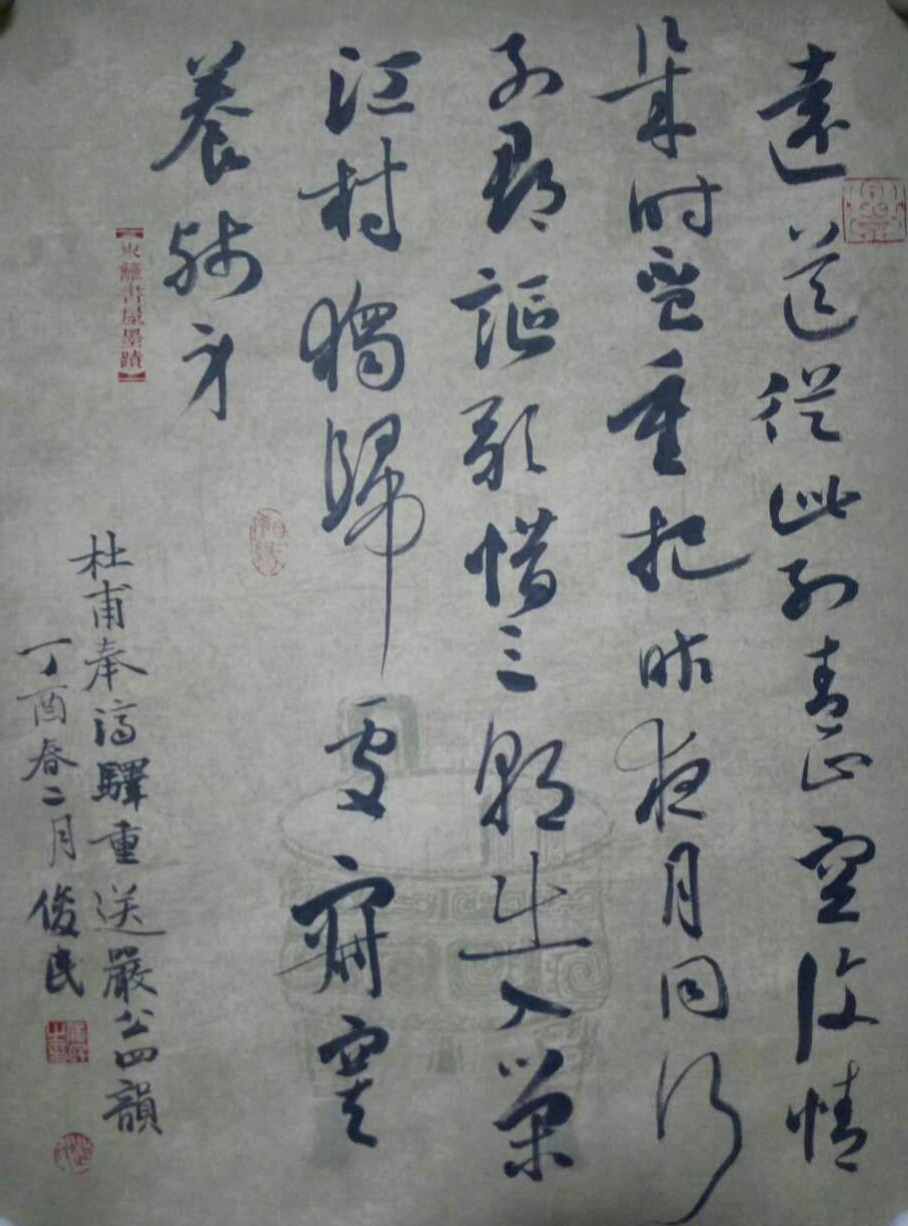 遠送從此别青山空復情
幾时盃重把昨夜月同行
列郡謳歌惜三朝出入榮
江村獨歸處寂寞
養殘
【東籬書屋墨蹟】
杜甫奉濟驛重送嚴公四韻
丁酉春二月俊民